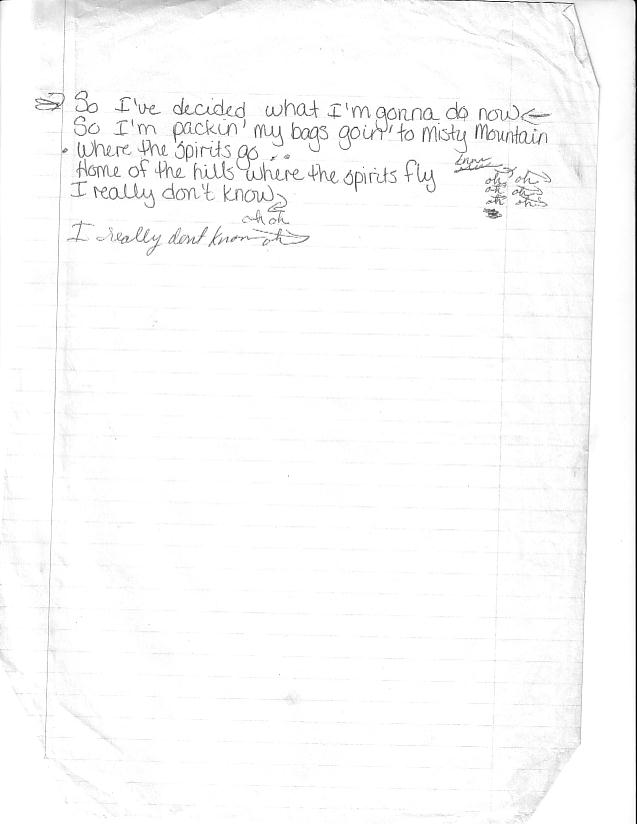 So I've decided what I'm gonna do now
So I'm packin' my bags goin' to Misty Mountain
. Where the spirits go . .
Home of the hills where the spirits fly
I really don't know
oh oh
oh oh
oh oh
oh oh
I really dont know oh